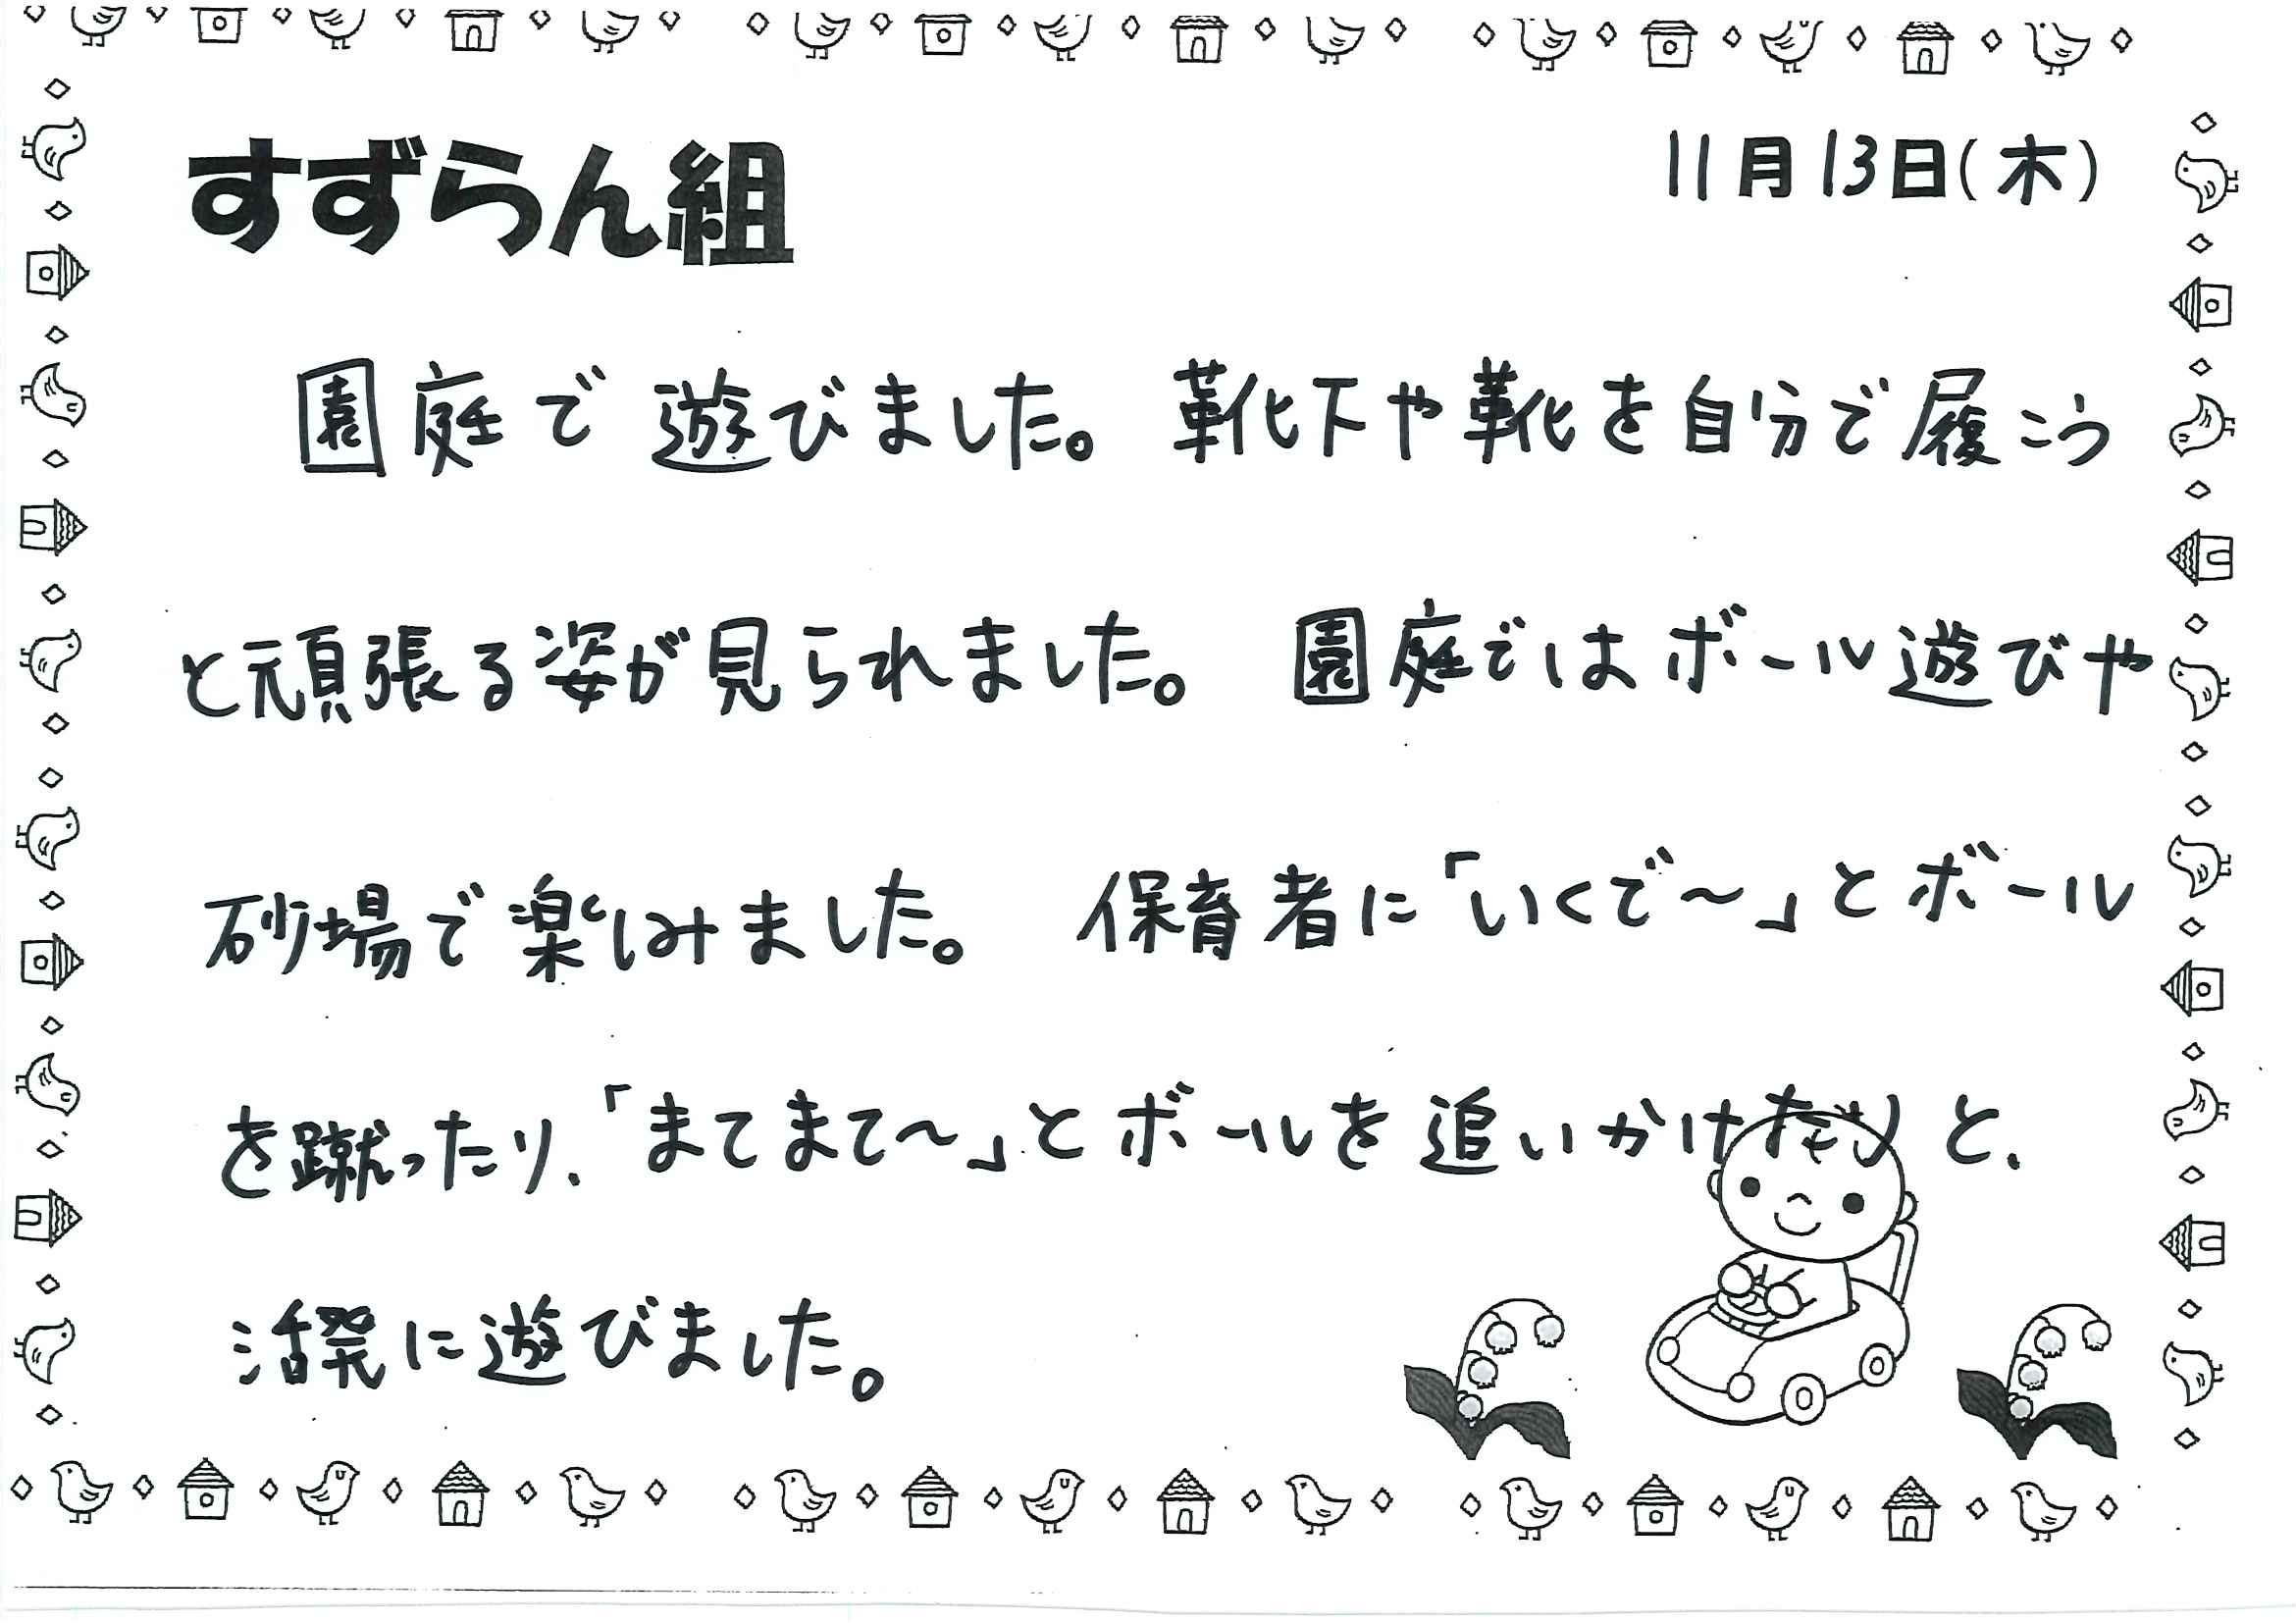 すずらん組
11月13日(木)
園庭で遊びました。靴下や靴を自分で履こう
と頑張る姿が見られました。園庭ではボール遊びや
砂場で楽しみました。保育者に「いくで〜」とボール
を蹴ったり、「まてまて〜」とボールを追いかけたりと、
活発に遊びました。